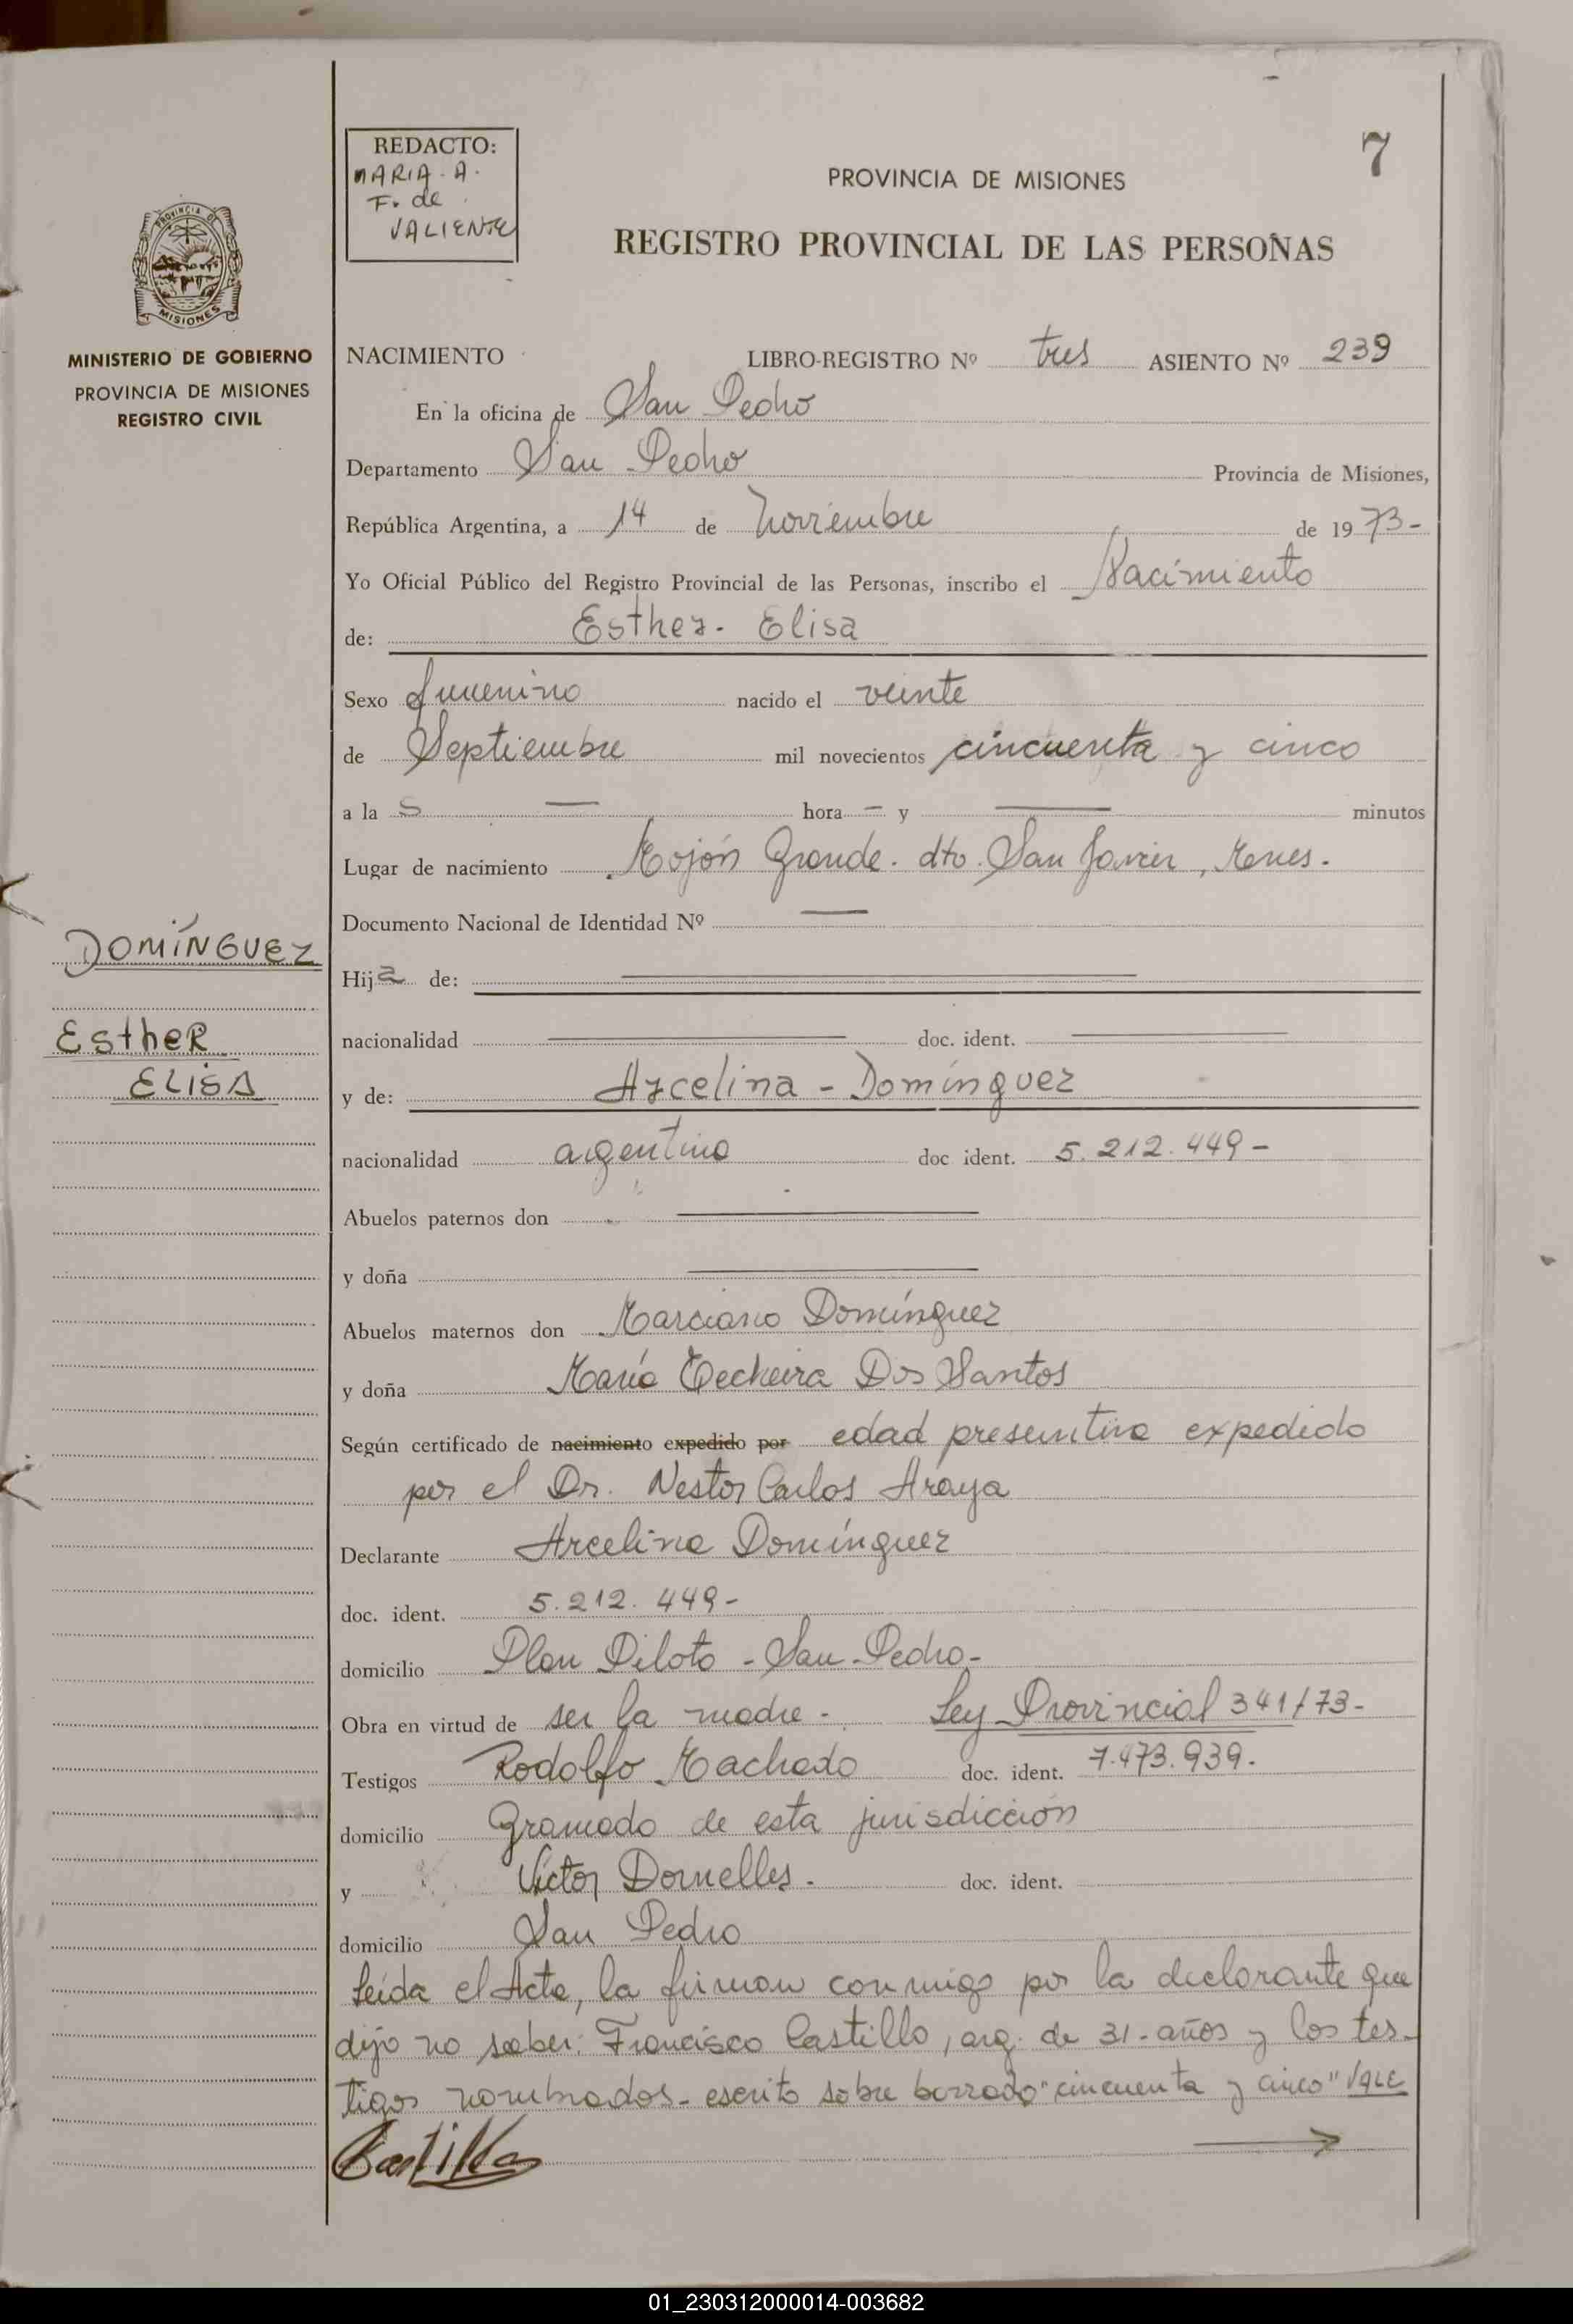 7
REDACTO:
MARIA. A.
F. de
VALIENTE
PROVINCIA DE MISIONES
REGISTRO PROVINCIAL DE LAS PERSONAS
PROVINCIA DE
MISIONES
MINISTERIO DE GOBIERNO
PROVINCIA DE MISIONES
REGISTRO CIVIL
NACIMIENTO LIBRO-REGISTRO Nº tres ASIENTO Nº 239
En la oficina de San Pedro
Departamento San Pedro Provincia de Misiones,
República Argentina, a 14 de Noviembre de 1973-
Yo Oficial Público del Registro Provincial de las Personas, inscribo el Nacimiento
de: Esther- Elisa
Sexo femenino nacido el veinte
de Septiembre mil novecientos cincuenta y cinco
a la s — hora — y — minutos
Lugar de nacimiento Mojón Grande. dto. San Javier, Mnes.
Documento Nacional de Identidad Nº —
DOMÍNGUEZ
Hija de:
ESTHER
ELISA
nacionalidad — doc. ident. —
y de: Arcelina - Domínguez
nacionalidad argentina doc ident. 5.212.449-
Abuelos paternos don —
y doña —
Abuelos maternos don Marciano Domínguez
y doña María Techeira Dos Santos
Según certificado de nacimiento expedido por edad presuntiva expedido
por el Dr. Nestor Carlos Araya
Declarante Arcelina Domínguez
doc. ident. 5.212.449-
domicilio Plan Piloto - San-Pedro-
Obra en virtud de ser la madre -. Ley Provincial 341/73-
Testigos Rodolfo Machado doc. ident. 7.473.939.
domicilio Gramado de esta jurisdicción
y Víctor Dornelles. doc. ident.
domicilio San Pedro
Leída el Acta, la firman conmigo por la declarante que
dijo no saber: Francisco Castillo, arg. de 31-años y los tes-
tigos nombrados- escrito sobre borrado "cincuenta y cinco" VALE
Castillo
01_230312000014-003682